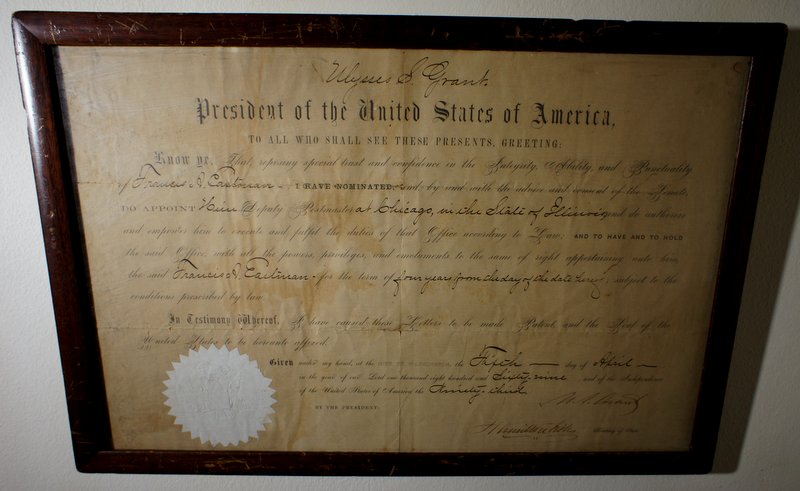 Ulysses S. Grant
President of the United States of America,
TO ALL WHO SHALL SEE THESE PRESENTS, GREETING:
Know ye, That, reposing special trust and confidence in the Integrity, Ability, and Punctuality
of Francis A. Eastman I HAVE NOMINATED, and by and with the advice and consent of the Senate,
DO APPOINT Him Deputy Postmaster at Chicago, in the State of Illinois and do authorize
and empower him to execute and fulfil the duties of that Office according to Law; AND TO HAVE AND TO HOLD
the said Office, with all the powers, privileges, and emoluments to the same of right appertaining unto him,
the said Francis A. Eastman for the term of four years from the day of the date hereof, subject to the
conditions prescribed by law.
In Testimony Whereof, I have caused these Letters to be made Patent, and the Seal of the
United States to be hereunto affixed.
Given under my hand, at the CITY OF WASHINGTON, the Fifth day of April
in the year of our Lord one thousand eight hundred and Sixty nine, and of the Independence
of the United States of America the Ninety third
U. S. Grant
BY THE PRESIDENT:
Hamilton Fish Secretary of State.